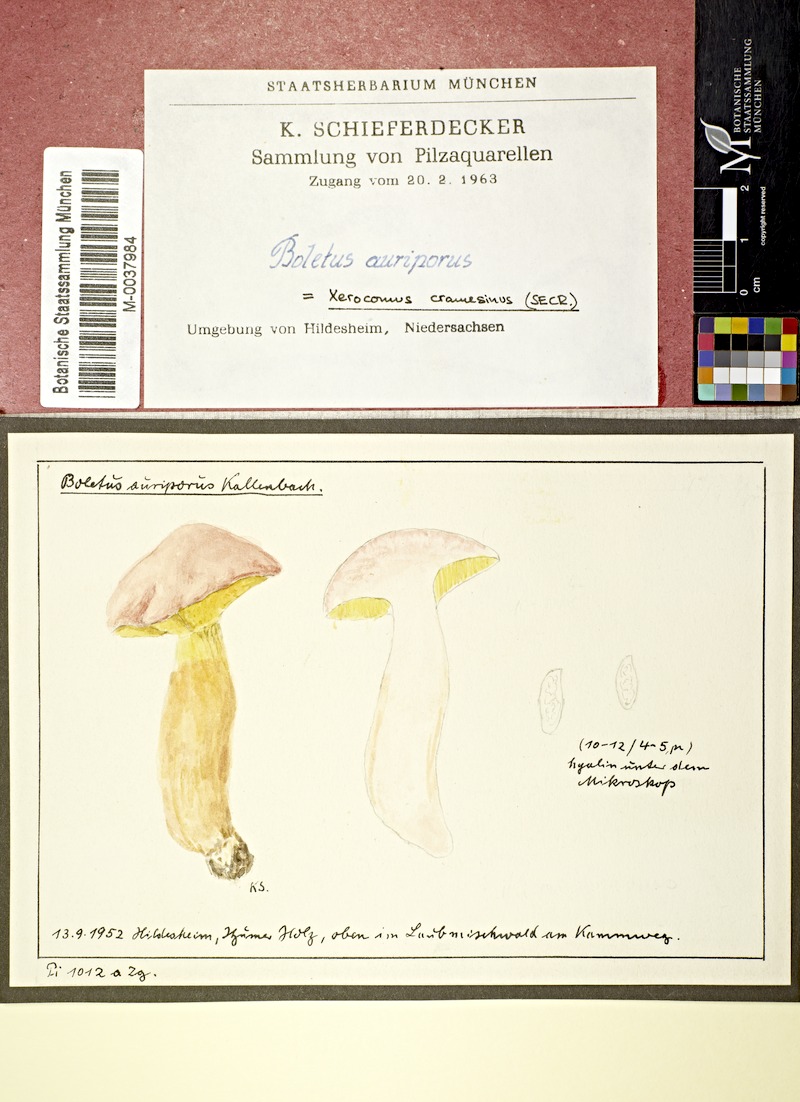 STAATSHERBARIUM MÜNCHEN
K. SCHIEFERDECKER
Sammlung von Pilzaquarellen
Zugang vom 20. 2. 1963
Boletus auriporus
= Xerocomus cramesinus (SECR.)
Umgebung von Hildesheim, Niedersachsen
Botanische Staatssammlung München
M-0037984
BOTANISCHE
STAATSSAMMLUNG
MÜNCHEN
0 1 2
cm
copyright reserved
Boletus auriporus Kallenbach.
(10-12/4-5 µ)
hyalin unter dem
Mikroskop
KS.
13.9.1952 Hildesheim, Holz, oben im Laubmischwald am Kammweg.
Pi 1012 a Zg.